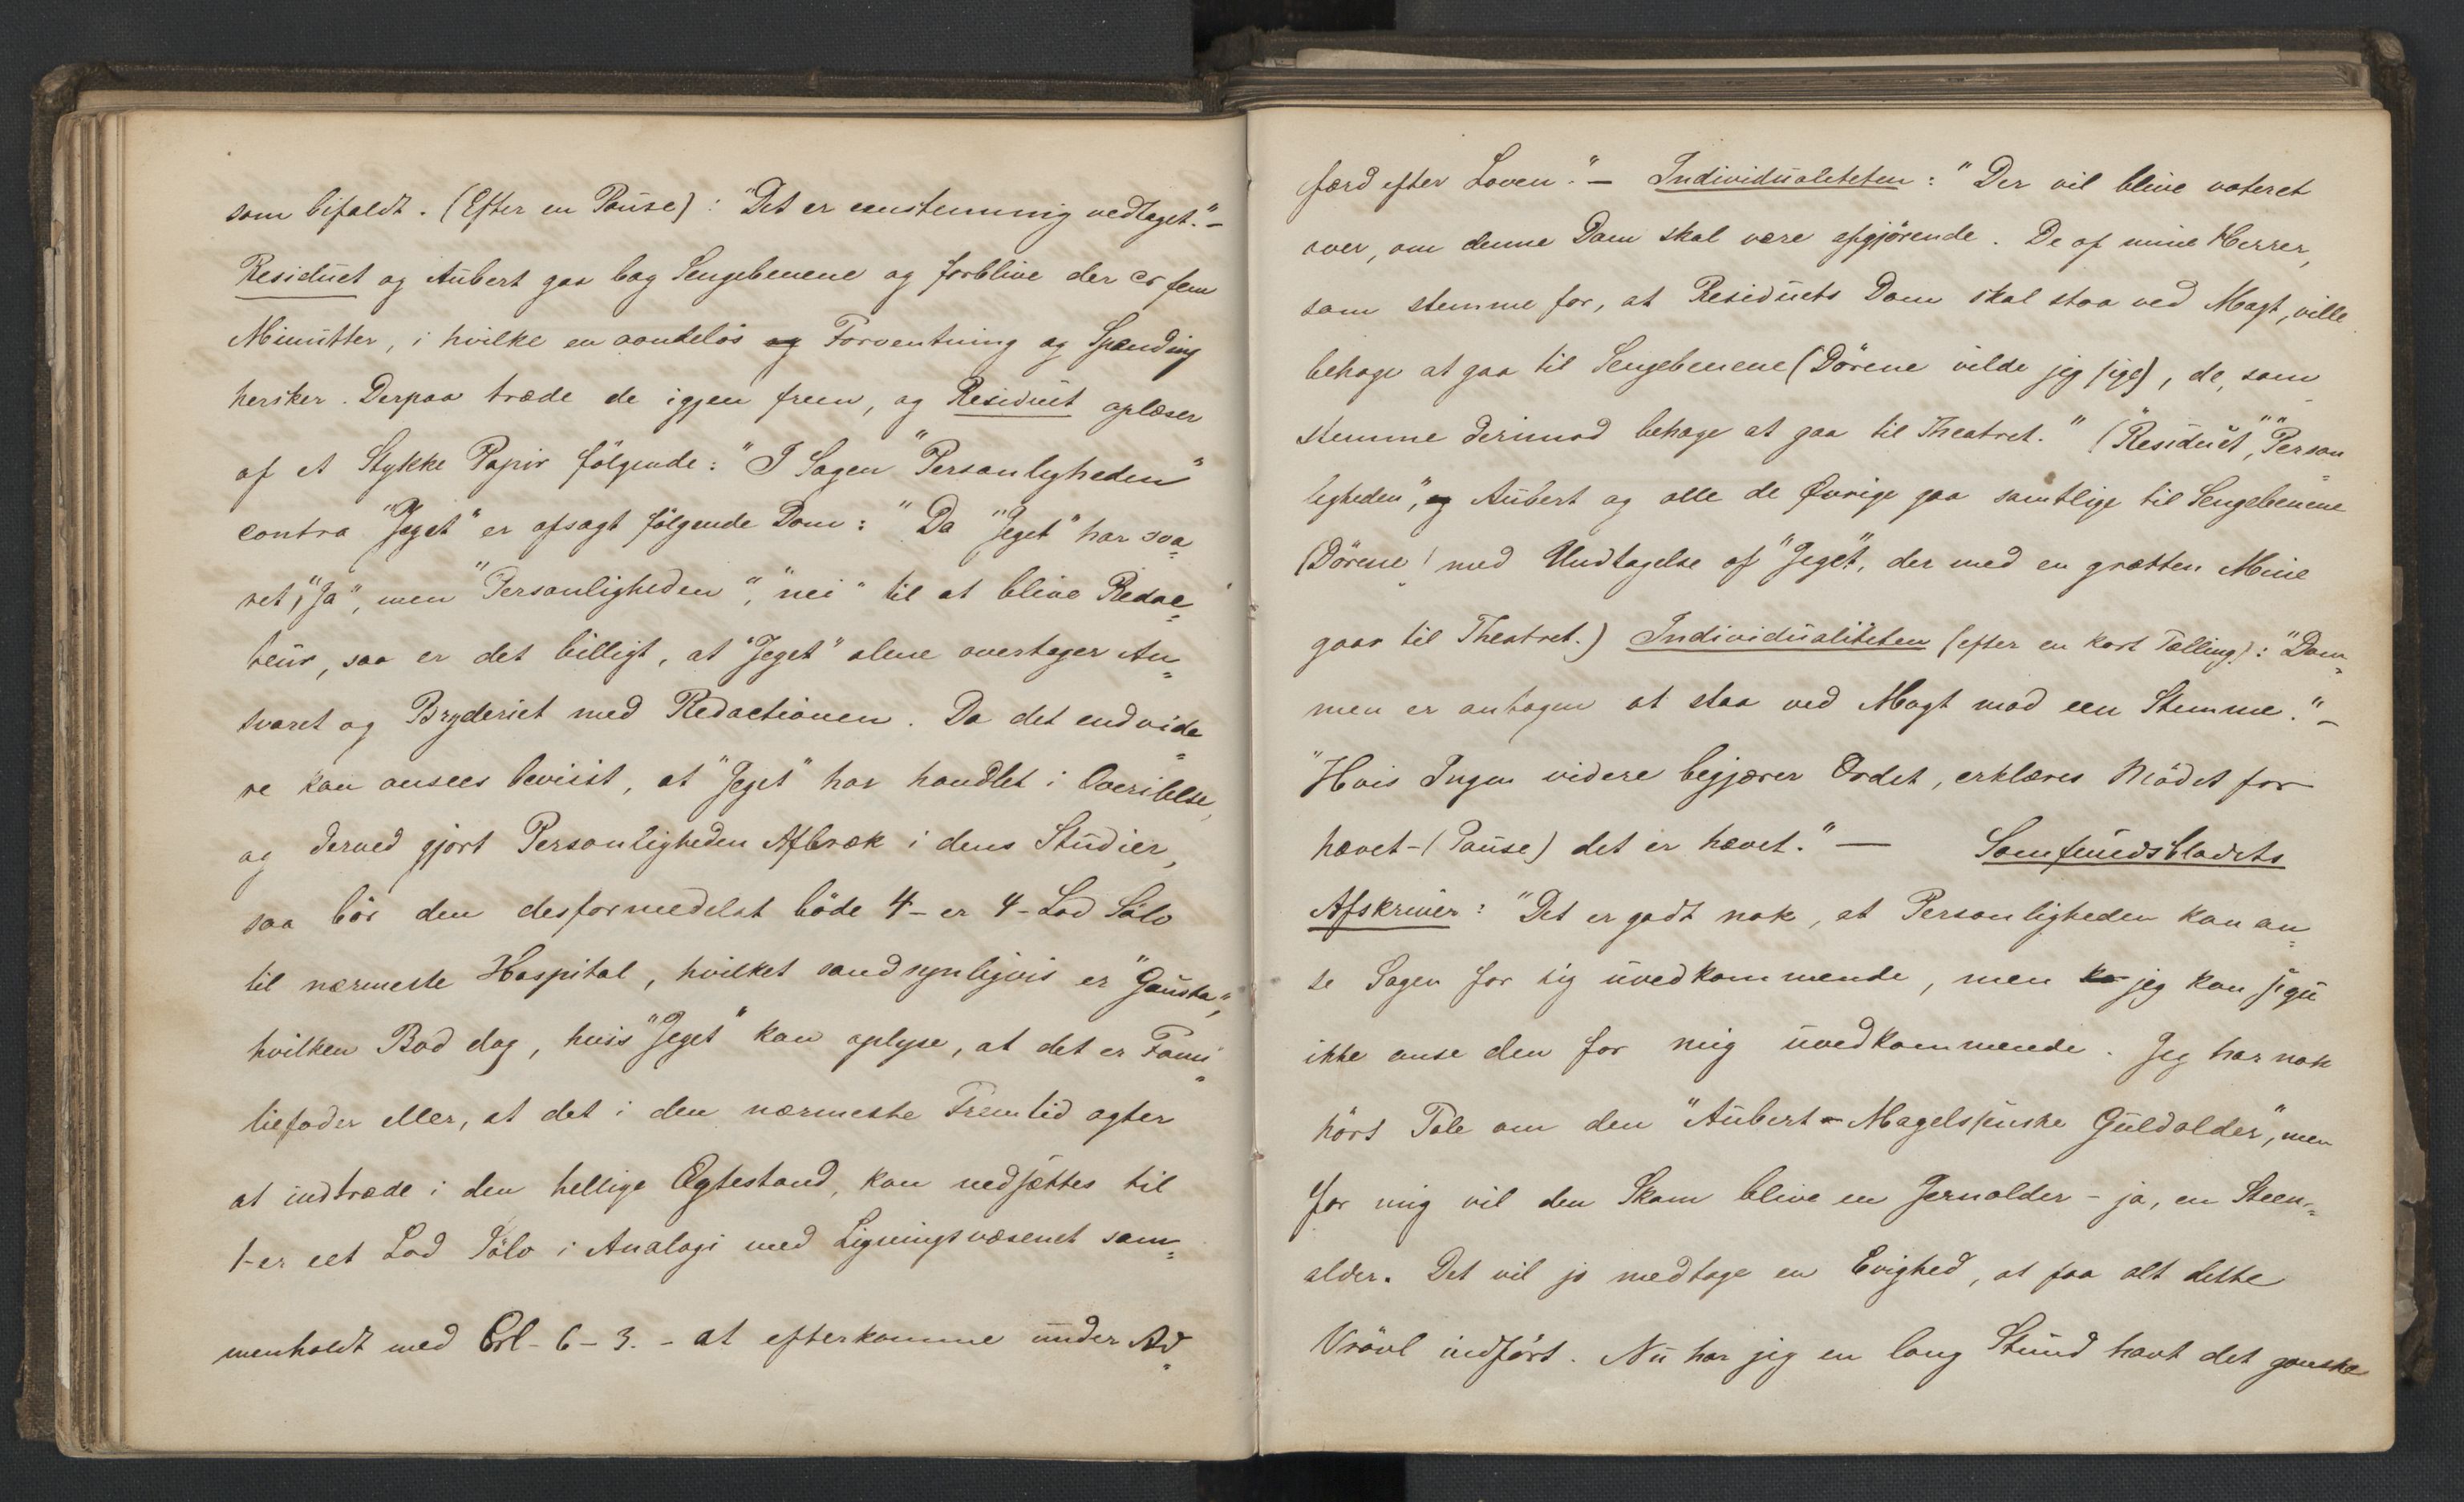 som bifaldt. (Efter en Pause): "Det er eenstemmig vedtaget."–
Residuet og Aubert gaa bag Sengebenene og forblive der ca fem
Minutter, i hvilke en aandeløs og Forventning og Spænding
hersker. Derpaa træde de igjen frem, og Residuet oplæser
af et Stykke Papir følgende: "I Sagen "Personligheden"
contra "Jeget" er afsagt følgende Dom: "Da "Jeget" har sva=
ret, "Ja", men "Personligheden", "nei" til at blive Redac=
teur, saa er det billigt, at "Jeget" alene overtager An=
svaret og Bryderiet med Redactionen. Da det endvide=
re kan ansees beviist, at "Jeget" har handlet i Overilelse,
og derved gjort Personligheden Afbræk i dens Studier,
saa bør den desformedelst bøde 4- er 4- Lod Sølv
til nærmeste Hospital, hvilket sandsynligvis er "Gausta",
hvilken Bod dog, hvis "Jeget" kan oplyse, at det er Fami=
liefader eller, at det i den nærmeste Fremtid agter
at indtræde i den hellige Ægtestand, kan nedsættes til
1- er eet Lod Sølv i Analogi med Ligningsvæsenet sam=
menholdt med Crl- 6- 3. - at efterkomme under Ad=
færd efter Loven." – Individualiteten: "Der vil blive voteret
over, om denne Dom skal være afgjørende. De af mine Herrer,
som stemme for, at Residuets Dom skal staa ved Magt, ville
behage at gaa til Sengebenene (Dørene vilde jeg sige), de, som
stemme derimod behage at gaa til Theatret." ("Residuet", "Person=
ligheden", og Aubert og alle de Øvrige gaa samtlige til Sengebenene
(Dørene) med Undtagelse af "Jeget", der med en grætten Mine
gaar til Theatret.) Individualiteten (efter en kort Tælling): "Dom=
men er antagen at staa ved Magt mod een Stemme."–
"Hvis Ingen videre begjærer Ordet, erklæres Mødet for
hævet- (Pause) det er hævet." — Samfundsbladets
Afskriver: "Det er godt nok, at Personligheden kan an=
se Sagen for sig uvedkommende, men ka jeg kan sgu
ikke anse den for mig uvedkommende. Jeg har nok
hørt Tale om den "Aubert-Magelssenske Guldalder", men
for mig vil den Skam blive en Jernalder - ja, en Steen=
alder. Det vil jo medtage en Evighed, at faa alt dette
Vrøvl indført. Nu har jeg en lang Stund havt det ganske